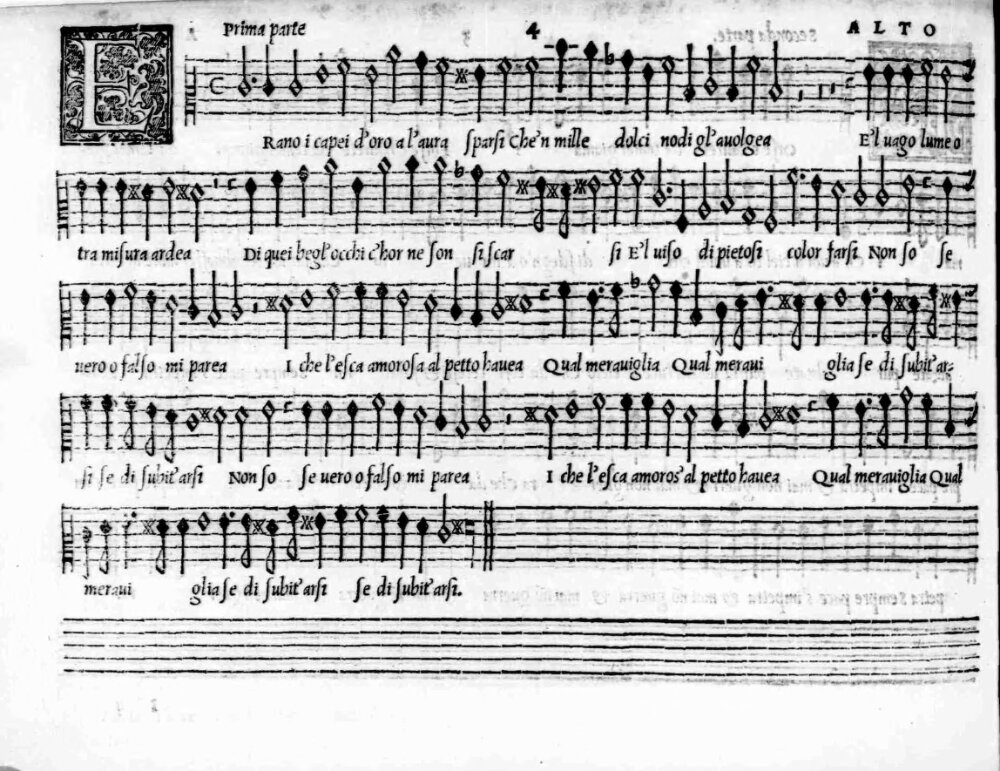 Prima parte 4 ALTO
E Rano i capei d'oro a l'aura sparsi Che'n mille dolci nodi gl'auolgea E'l uago lume o
tra misura ardea Di quei begl'occhi c'hor ne son si scar si E'l uiso di pietosi color farsi Non so se
uero o falso mi parea I che l'esca amorosa al petto hauea Qual merauiglia Qual meraui glia se di subit'ar-
si se di subit'arsi Non so se uero o falso mi parea I che l'esca amoros'al petto hauea Qual merauiglia Qual
meraui glia se di subit'arsi se di subit'arsi.